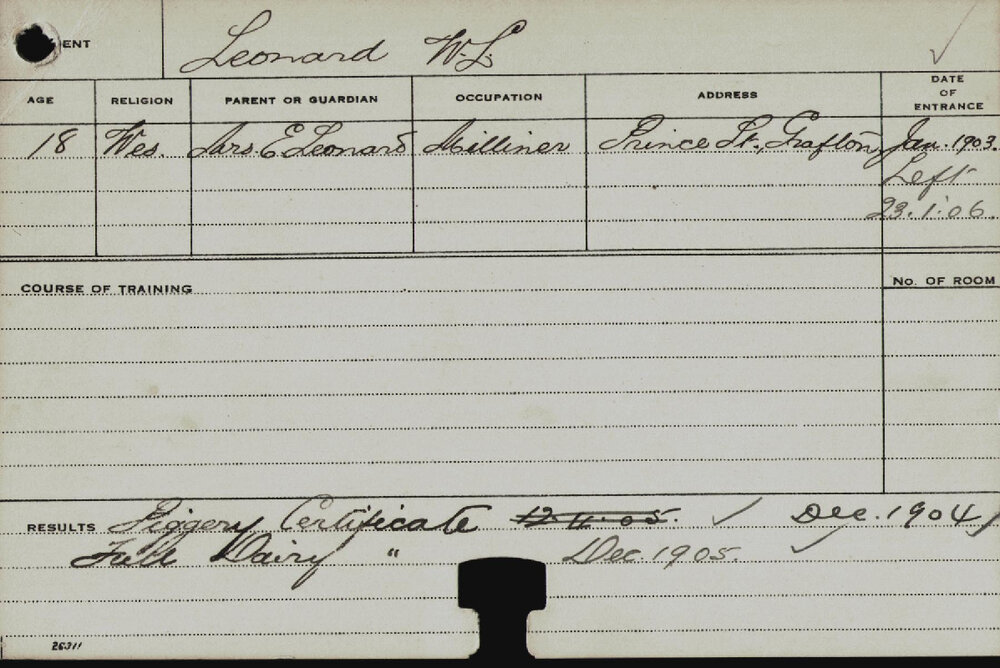 ENT Leonard W.L.
AGE RELIGION PARENT OR GUARDIAN OCCUPATION ADDRESS DATE OF ENTRANCE
18 Wes. Mrs. E Leonard Milliner Prince St., Grafton Jan. 1903.
Left
23.1.06.
COURSE OF TRAINING No. OF ROOM
RESULTS Piggery Certificate 12.11.05. ✓ Dec. 1904
Full Dairy " Dec. 1905. ✓